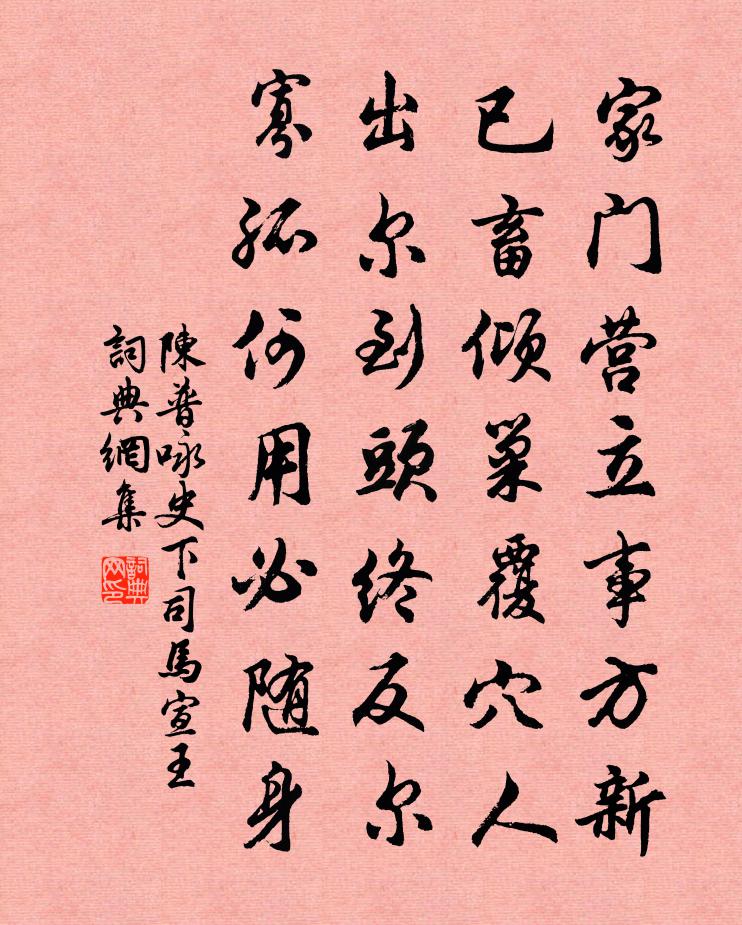 家门营立事方新
已畜倾巢覆穴人
出尔到頭终反尔
寡孤何用必随身
陳普咏史下司馬宣王
詞典網集
詞典网印